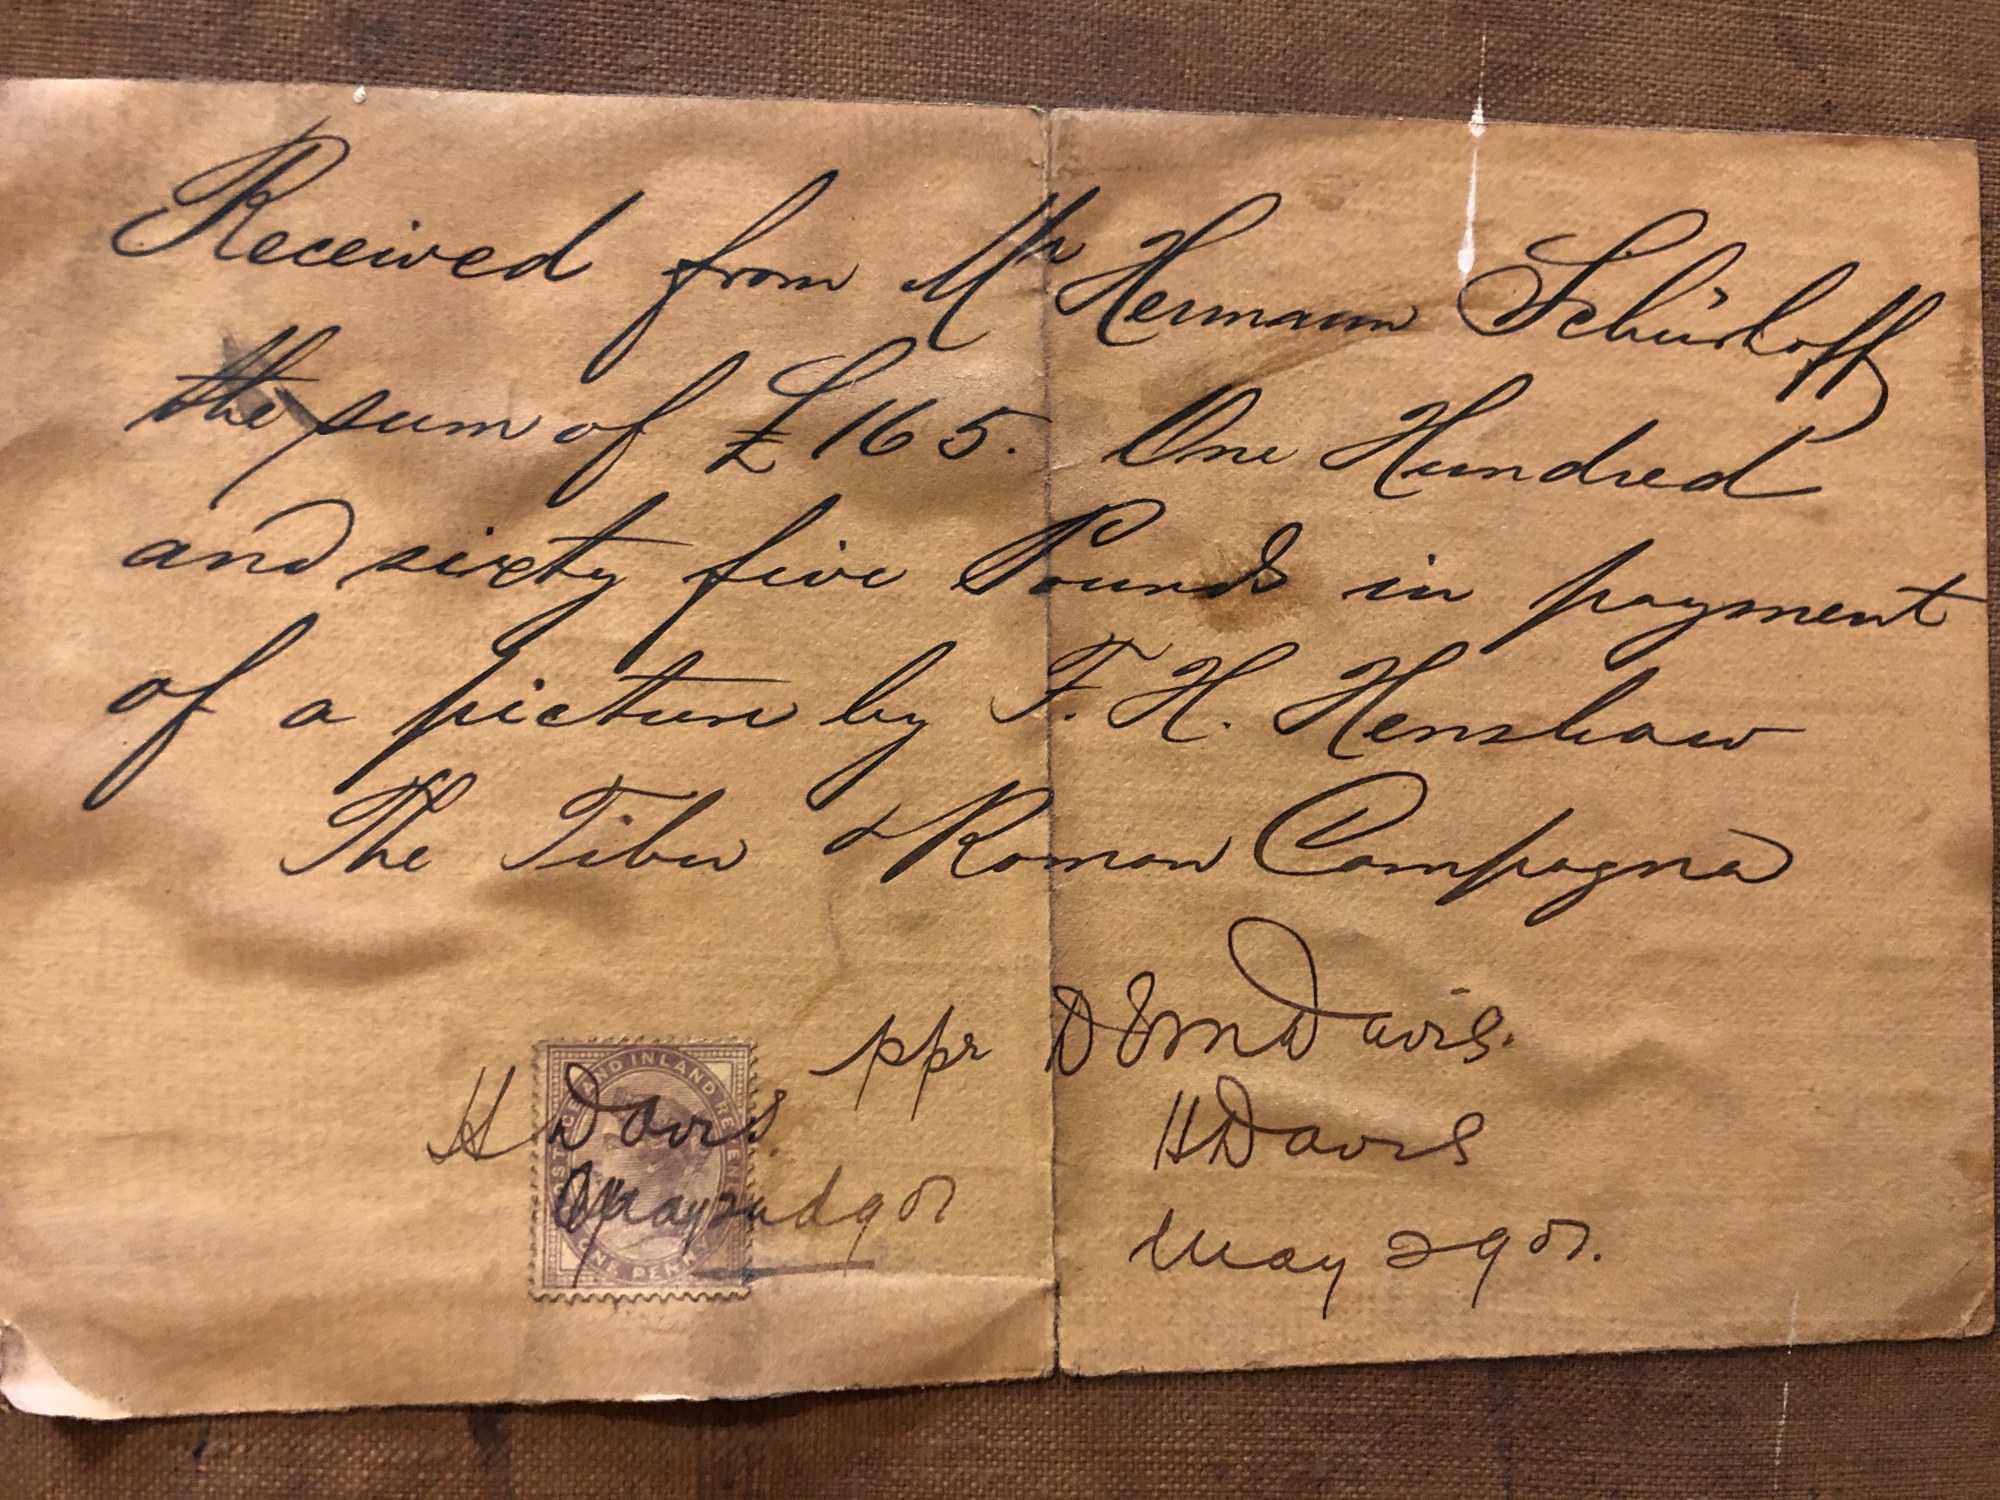 Received from Mr Hermann Schürhoff
the sum of £165. One Hundred
and sixty five Pounds in payment
of a picture by F. H. Henshaw
The Tiber & Roman Campagna
ppr D E M Davis.
H Davis
May 2 901.
POSTAGE AND INLAND REVENUE
ONE PENNY
H Davis.
May 2nd 901